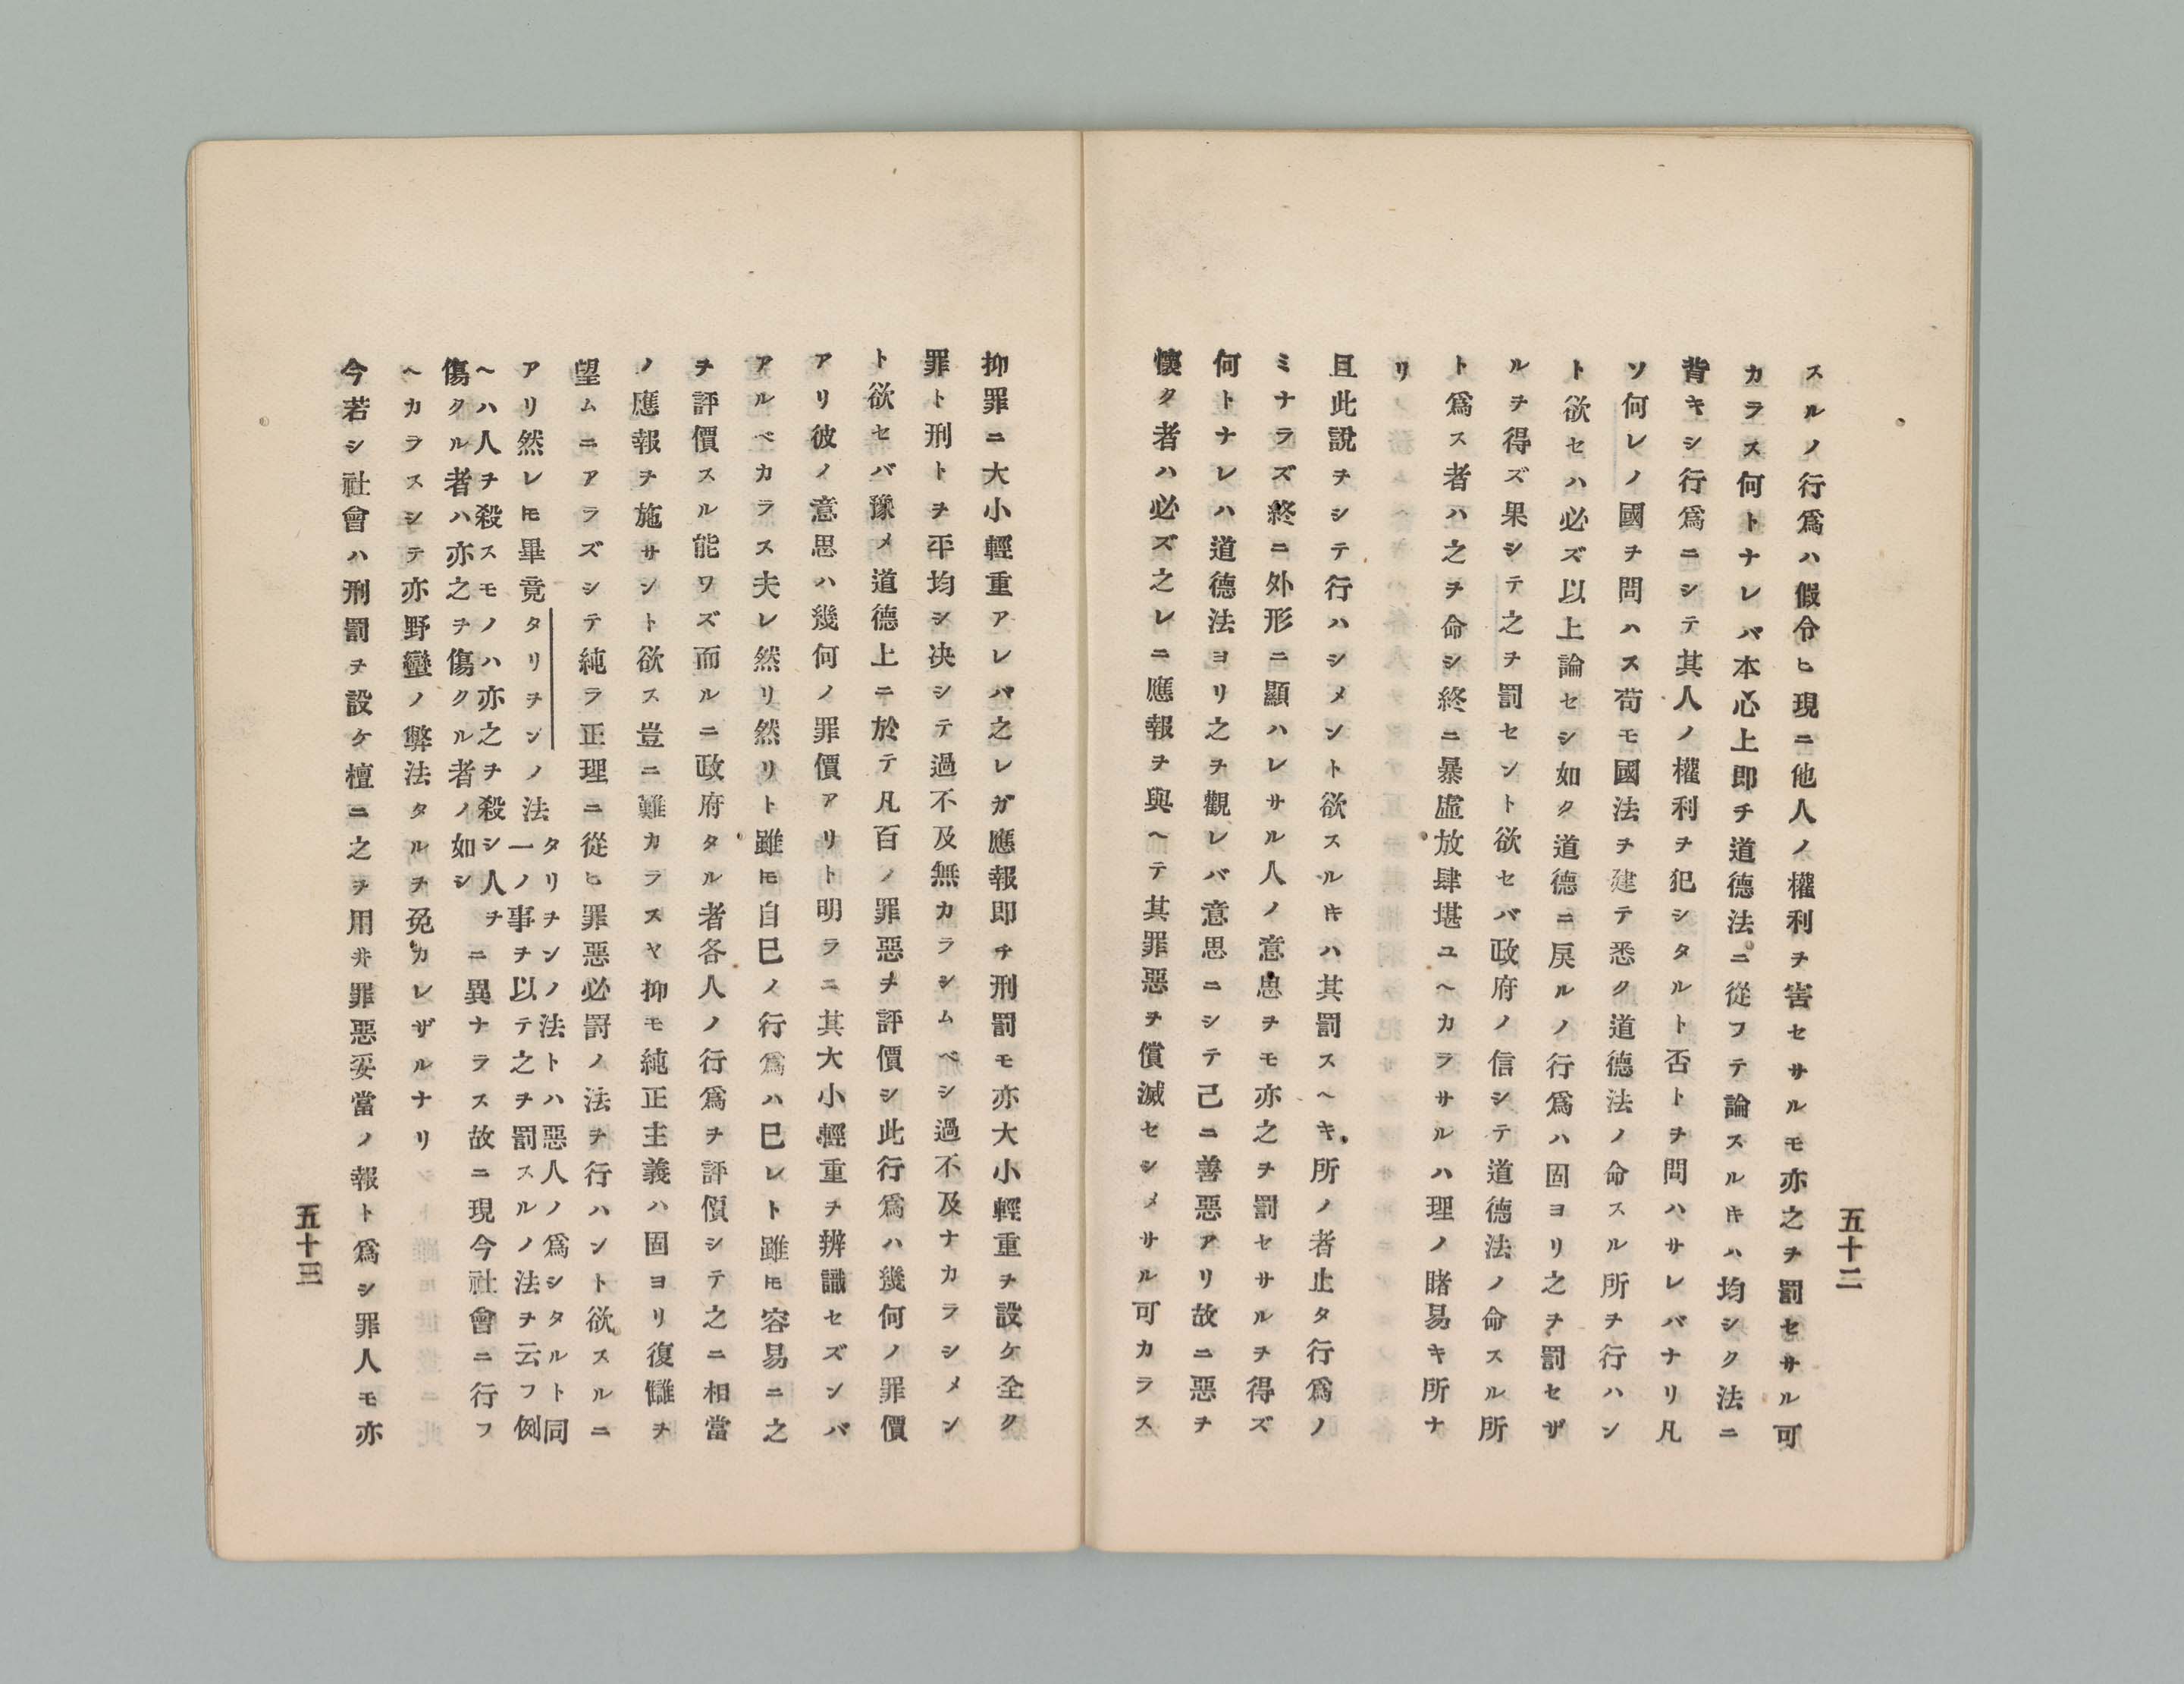 五十二
スルノ行爲ハ假令ヒ現ニ他人ノ權利ヲ害セサルモ亦之ヲ罰セサル可
カラス何トナレバ本心上即チ道德法ニ從フテ論スルキハ均シク法ニ
背キシ行爲ニシテ其人ノ權利ヲ犯シタルト否トヲ問ハサレバナリ凡
ソ何レノ國ヲ問ハス苟モ國法ヲ建テ悉ク道德法ノ命スル所ヲ行ハン
ト欲セハ必ズ以上論セシ如ク道德ニ戻ルノ行爲ハ固ヨリ之ヲ罰セザ
ルヲ得ズ果シテ之ヲ罰セント欲セバ政府ノ信シテ道德法ノ命スル所
ト爲ス者ハ之ヲ命シ終ニ暴虐放肆堪ユヘカラサルハ理ノ睹易キ所ナ
リ
且此說ヲシテ行ハシメント欲スルキハ其罰スヘキ所ノ者止タ行爲ノ
ミナラズ終ニ外形ニ顯ハレサル人ノ意思ヲモ亦之ヲ罰セサルヲ得ズ
何トナレハ道德法ヨリ之ヲ觀レバ意思ニシテ己ニ善惡アリ故ニ惡ヲ
懷ク者ハ必ズ之レニ應報ヲ與ヘテ其罪惡ヲ償滅セシメサル可カラス
抑罪ニ大小輕重アレバ之レガ應報即チ刑罰モ亦大小輕重ヲ設ケ全ク
罪ト刑トヲ平均シ决シテ過不及無カラシムベシ過不及ナカラシメン
ト欲セバ豫メ道德上ニ於テ凡百ノ罪惡ヲ評價シ此行爲ハ幾何ノ罪價
アリ彼ノ意思ハ幾何ノ罪價アリト明ラニ其大小輕重ヲ辨識セズンバ
アルベカラス夫レ然リ然リト雖モ自巳ノ行爲ハ巳レト雖モ容易ニ之
ヲ評價スル能ワズ而ルニ政府タル者各人ノ行爲ヲ評價シテ之ニ相當
ノ應報ヲ施サント欲ス豈ニ難カラスヤ抑モ純正主義ハ固ヨリ復讎ヲ
望ムニアラズシテ純ラ正理ニ從ヒ罪惡必罸ノ法ヲ行ハント欲スルニ
アリ然レ𪜈畢竟タリヲンノ法
タリヲンノ法トハ惡人ノ爲シタルト同
一ノ事ヲ以テ之ヲ罰スルノ法ヲ云フ例
ヘハ人ヲ殺スモノハ亦之ヲ殺シ人ヲ
傷クル者ハ亦之ヲ傷クル者ノ如シ
ニ異ナラス故ニ現今社會ニ行フ
ヘカラスシテ亦野蠻ノ弊法タルヲ免カレザルナリ
今若シ社會ハ刑罰ヲ設ケ檀ニ之ヲ用井罪惡妥當ノ報ト爲シ罪人モ亦
五十三